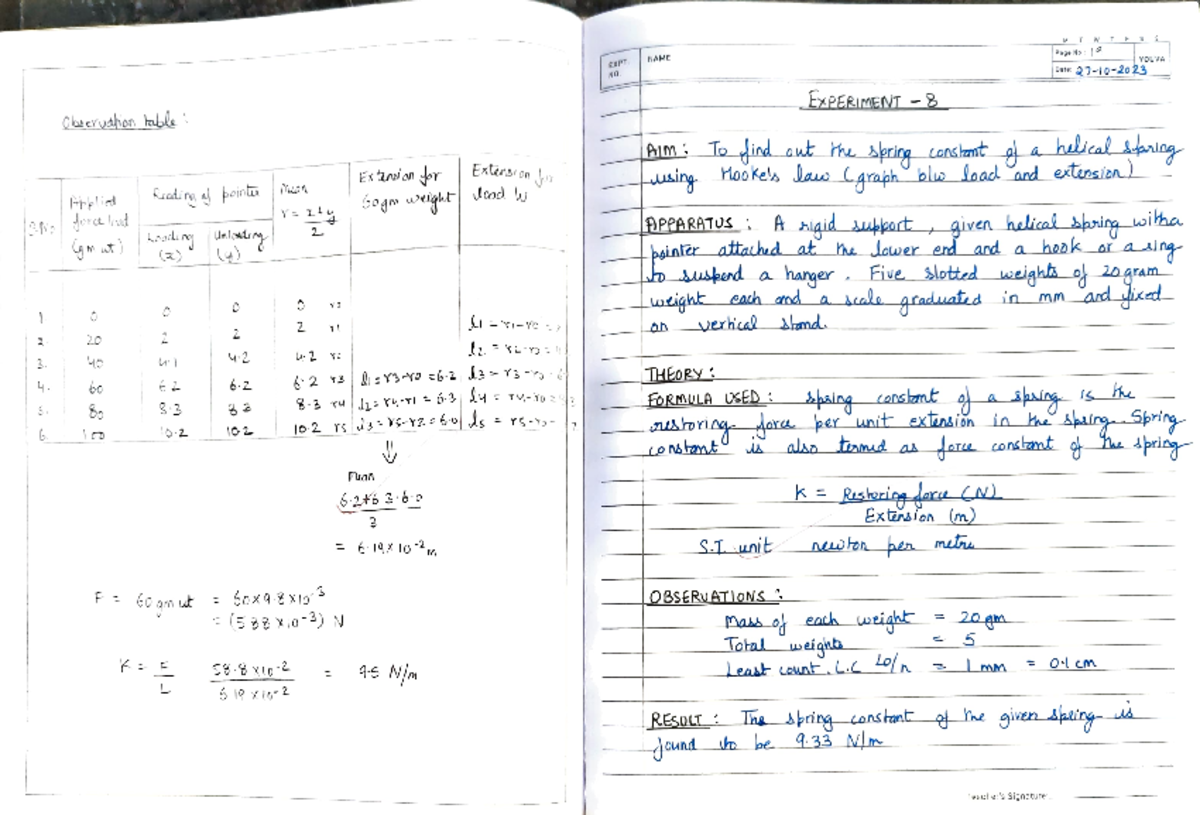 Observation table :
S.No
Applied force load (gm wt)
Reading of pointer
Loading (x)
Unloading (y)
Mean
r = x+y / 2
Extension for 60gm weight
Extension for load W
1 0 0 0 0 r0
2 20 2 2 2 r1 l1 = r1-r0 =
3. 40 4.1 4.2 4.2 r2 l2 = r2-r0 =
4. 60 6.2 6.2 6.2 r3 l1 = r3-r0 = 6.2 l3 = r3-r0
5. 80 8.3 8.3 8.3 r4 l2 = r4-r1 = 6.3 l4 = r4-r0 =
6. 100 10.2 10.2 10.2 r5 l3 = r5-r2 = 6.0 l5 = r5-r0
Mean
6.2+6.3.6.0
3
= 6.19 x 10-2 m
F = 60 gm wt = 60 x 9.8 x 10-3
= (588 x 10-3) N
K = F 58.8 x 10-2 = 9.5 N/m
L 6.19 x 10-2
EXPT. NO.
NAME
Page No :
YOUVA
Date: 27-10-2023
EXPERIMENT - 8
AIM : To find out the spring constant of a helical spring
using Hooke's law (graph b/w load and extension)
APPARATUS : A rigid support, given helical spring with a
pointer attached at the lower end and a hook or a ring
to suspend a hanger. Five slotted weights of 20 gram
weight each and a scale graduated in mm and fixed
on vertical stand.
THEORY :
FORMULA USED : spring constant of a spring is the
restoring force per unit extension in the spring. Spring
constant is also termed as force constant of the spring
K = Restoring force (N)
Extension (m)
S.I. unit newton per metre
OBSERVATIONS :
Mass of each weight = 20 gm
Total weights = 5
Least count. L.C Lo/n = 1 mm = 0.1 cm
RESULT : The spring constant of the given spring is
found to be 9.33 N/m
Teacher's Signature